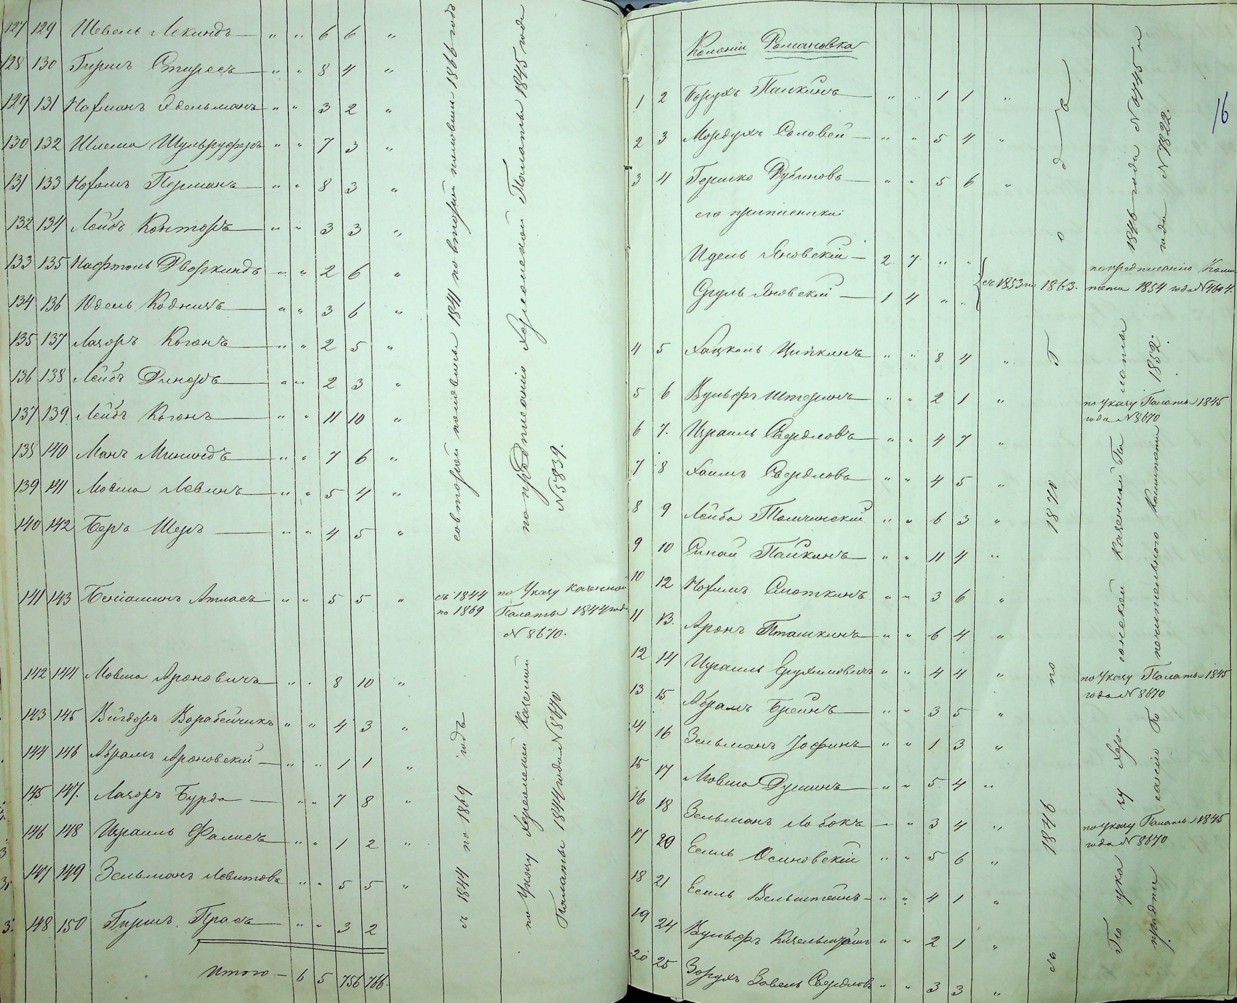 127 129 Шевель Лекиндъ — „ „ 6 6 „
128 130 Гиршъ — „ „ 8 4 „
129 131 Нохманъ Эдельманъ — „ „ 3 2 „
130 132 Шлема — „ „ 7 3 „
131 133 Нохимъ Перманъ — „ „ 8 3 „
132 134 Лейбъ Конторъ — „ „ 3 3 „
133 135 Нафтоль Дворкиндъ „ „ 2 6 „
134 136 Юдель — „ „ 3 6 „
135 137 Лазоръ Коганъ — „ „ 2 5 „
136 138 Лейбъ — „ „ 2 3 „
137 139 Лейбъ Коганъ — „ „ 11 10 „
138 140 Манъ — „ „ 7 6 „
139 141 Мовша Левинъ — „ „ 5 4 „
140 142 Беръ Шеръ — „ „ 4 5 „
со второй половины 1841 по вторую половину 1866 годъ
по предписанію Херсонской Палаты 1845 года
№ 5839.
141 143 Беніаминъ Атласъ — „ „ 5 5 „ съ 1844 по 1869
по Указу Казенной
Палаты 1844 года
№ 8670.
142 144 Мовша Ароновичъ „ „ 8 10 „
143 145 Вигдоръ Воробейчикъ „ „ 4 3 „
144 146 Абрамъ Ароновскій — „ „ 1 1 „
145 147 Лазоръ Бурда — „ „ 7 8 „
146 148 Израиль — „ „ 1 2 „
147 149 Зельманъ Левитовъ „ „ 5 5 „
148 150 Гиршъ Прасъ — „ „ 3 2
съ 1844 по 1869 годъ
по Указу Херсонской Казенной
Палаты 1844 года № 8670
Итого — 6 5 756 766
16
Колоніи Романовка
1 2 Борухъ Пайкинъ — „ „ 1 1 „
2 3 Мордухъ Соловей — „ „ 5 4 „
3 4 Гершко Рубиновъ — „ „ 5 6 „
его приписніи
Идель Яновскій — 2 7 „ „
Сруль Яновскій — 1 4 „ „
съ 1853 по 1863.
по предписанію Коми
тета 1854 года № 4604.
4 5 Хацкель Ципкинъ — „ „ 8 4 „
5 6 Вульфъ Штеринъ — „ „ 2 1 „
по Указу Палаты 1845
года № 8670
6 7. Израиль Свердловъ — „ „ 4 7 „
7 8 Хаимъ Свердловъ — „ „ 4 5 „
8 9 Лейба Толчинскій „ „ 6 3 „
9 10 Синай Пайкинъ — „ „ 11 4 „
10 12 Нохимъ Слоткинъ — „ „ 3 6 „
11 13. Аронъ Пташкинъ — „ „ 6 4 „
12 14 Израиль Ерухимовичъ „ „ 4 4 „
по Указу Палаты 1845
года № 8670
13 15 Абрамъ Брейнъ — „ „ 3 5 „
14 16 Зельманъ Іофинъ — „ „ 1 3 „
15 17 Мовша Рушинъ — „ „ 5 4 „
16 18 Зельманъ Лобокъ — „ „ 3 4 „
по Указу Палаты 1845
года № 8670
17 20 Есель Осиновскій „ „ 5 6 „
18 21 Есель Вельштейнъ — „ „ 4 1 „
19 24 Вульфъ „ „ 2 1 „
20 25 Борухъ Завель Свердловъ „ „ 3 3 „
съ 1846 по 1870 годъ
По указу Херсонской Казенной Палаты 1846 года № 4745 и
предписанію Попечительного Комитета 1852 года № 7822.